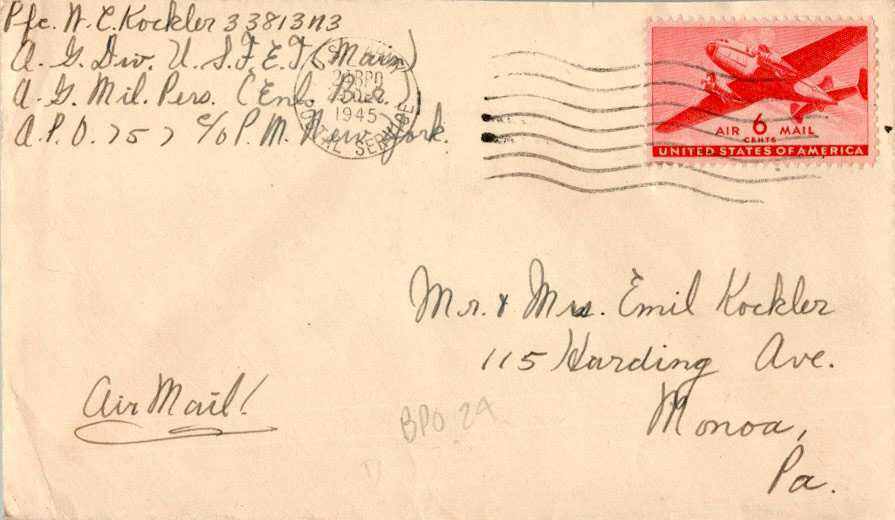 Pfc. W. C. Kockler 33813113
A. G. Div. U. S. F. E. T. (Main)
A. G. Mil. Pers. (Enl. Br.
A. P. O. 757 c/o P. M. New York.
BPO
1945
POSTAL SERVICE
AIR 6 MAIL
CENTS
UNITED STATES OF AMERICA
Mr. & Mrs. Emil Kockler
115 Harding Ave.
Monoa,
Pa.
Air Mail!
BPO 24